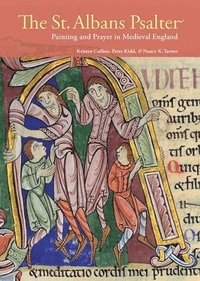 The St. Albans Psalter
Painting and Prayer in Medieval England
Kristen Collins, Peter Kidd, & Nancy K. Turner
UDITE
omnes
orbem
& filii
& meditatio cordis mei prudent